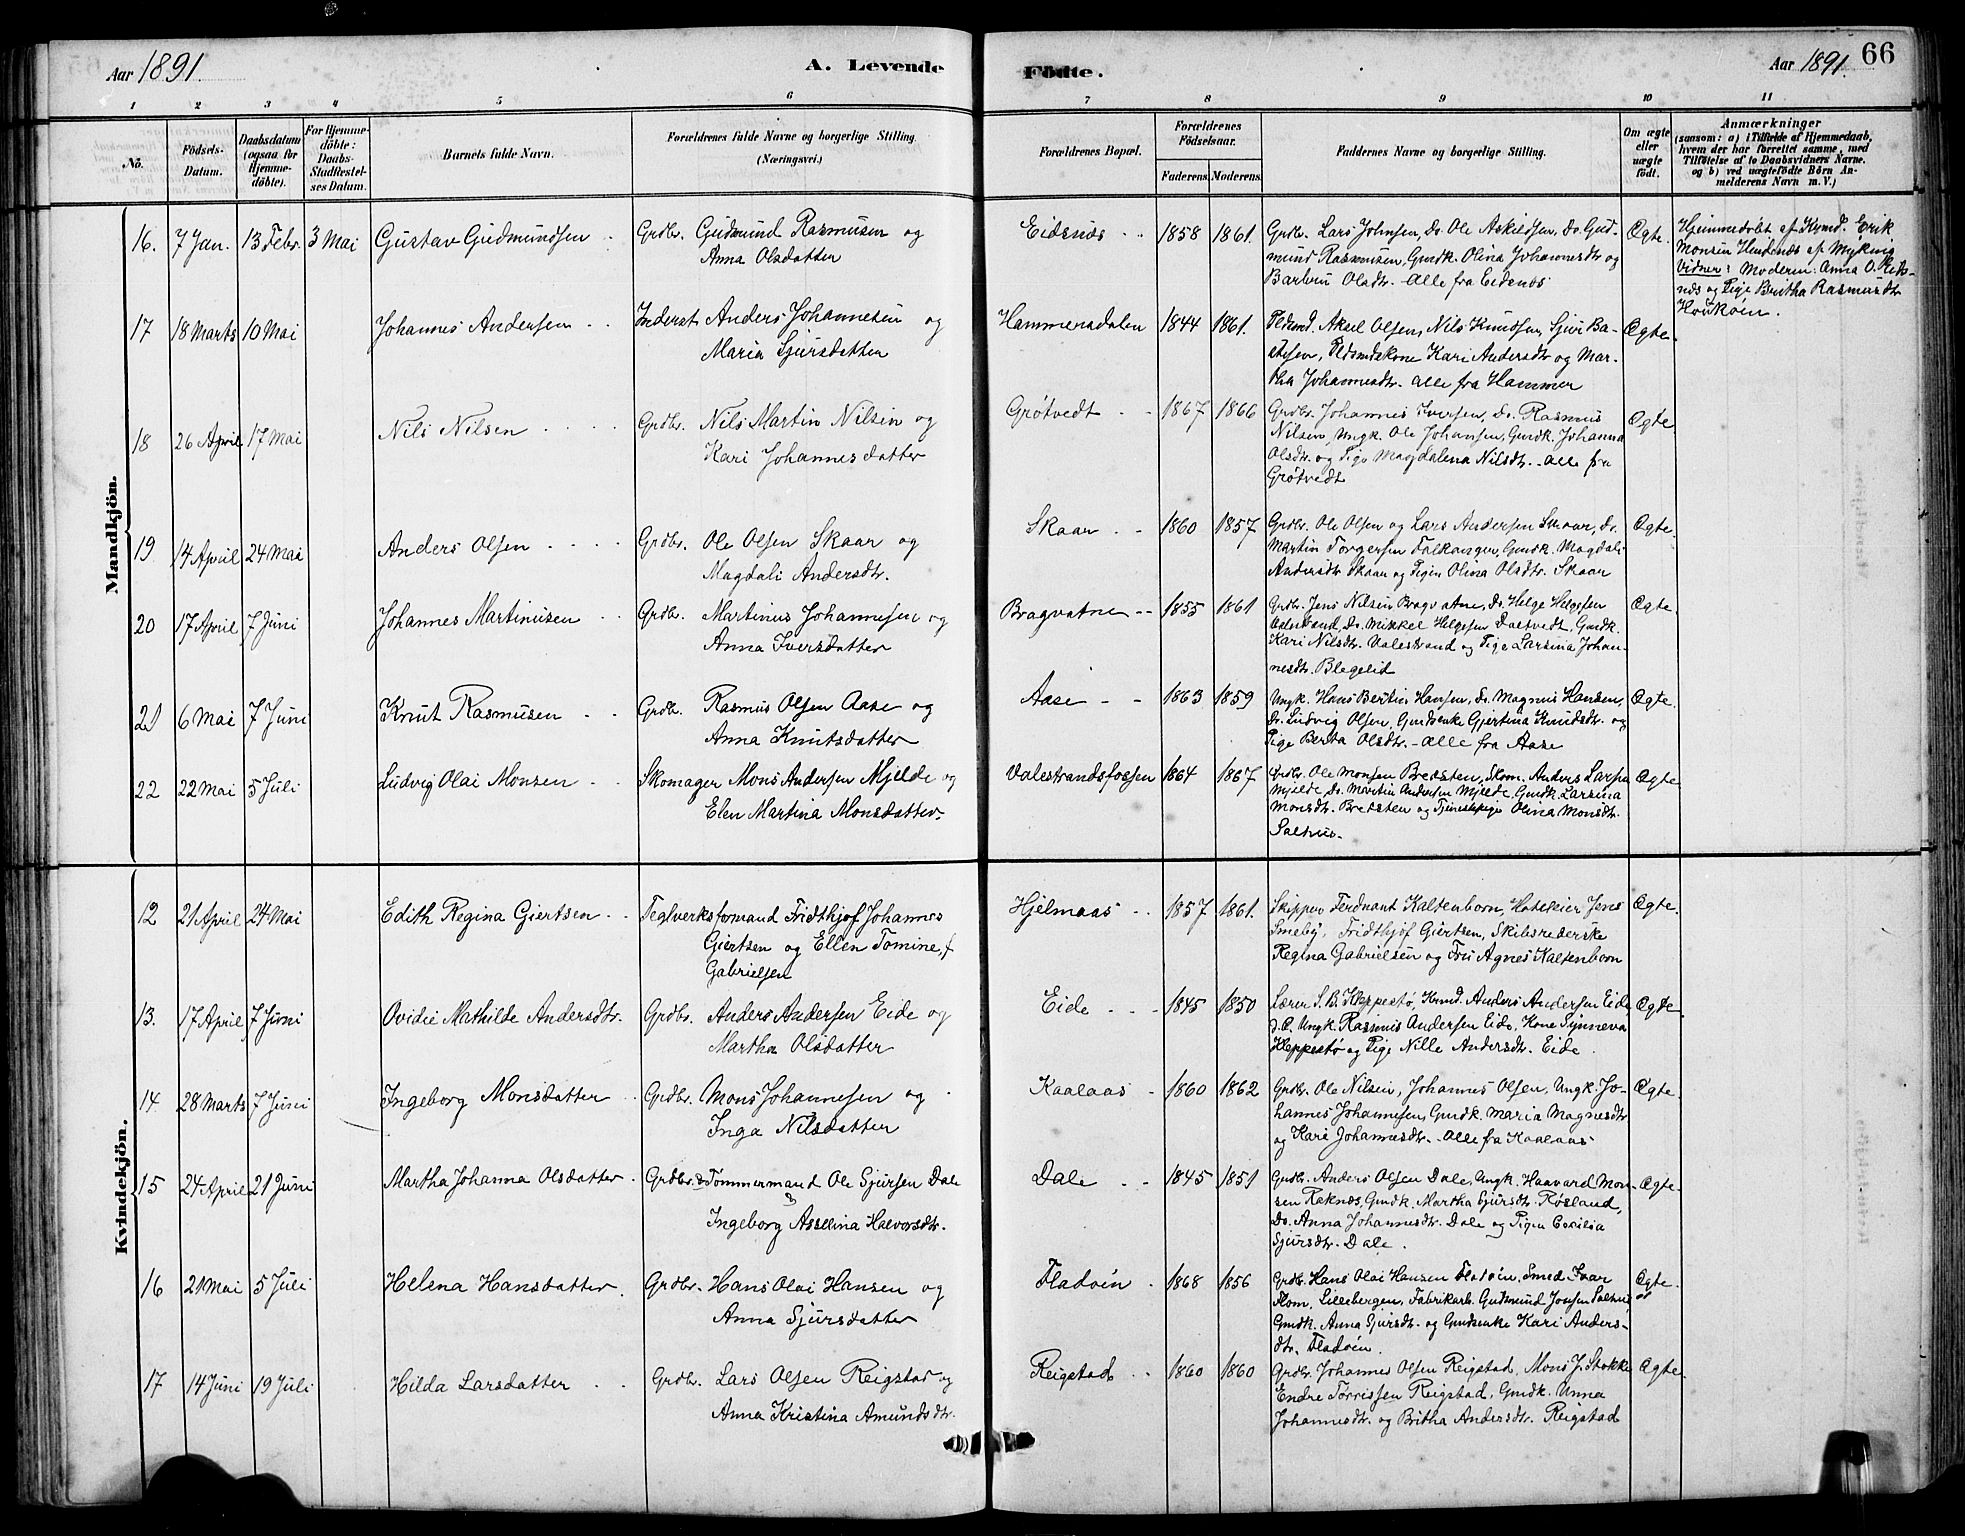 Aar 1891.
A. Levende Födte.
Aar 1891.
66
1 2 3 4 5 6 7 8 9 10 11
No.
Födsels-Datum.
Daabsdatum (ogsaa for Hjemme-döbte).
For Hjemme-döbte: Daabs-Stadfæstel-ses Datum.
Barnets fulde Navn.
Forældrenes fulde Navne og borgerlige Stilling. (Næringsvei.)
Forældrenes Bopæl.
Forældrenes Födselsaar.
Faderens. Moderens.
Faddernes Navne og borgerlige Stilling.
Om ægte eller uægte födt.
Anmærkninger
(saasom: a) i Tilfælde af Hjemmedaab, hvem der har forrettet samme, med Tilföielse af to Daabsvidners Navne. og b) ved uægtefödte Börn An-melderens Navn m. V.)
Mandkjön.
16. 7 Jan. 13 Febr. 3 Mai Gustav Gudmundsen Grdbr. Gudmund Rasmusen og
Anna Olsdatter
Eidsnæs 1858 1861. Grdbr. Lars Johnsen, Do. Ole Askildsen, Do. Gud-
mund Rasmusen, Gmdk. Olina Johannesdtr og
Barbru Olsdtr. - Alle fra Eidsnæs
Ægte.
Hjemmedøbt af Krmd. Erik
Monsen Hindenæs af Myking
Vidner: Moderen: Anna O. Eids-
næs og Pige Britha Rasmusdtr
17 18 Marts 10 Mai Johannes Andersen Inderst Anders Johannesen og
Maria Sjursdatter
Hammersdalen 1844 1861. Fldsmd. Aksel Olsen, Nils Knudsen, Sjur Ba-
stesen, Fldsmdskone Kari Andersdtr og Mar-
tha Johannesdtr. alle fra Hammer
Ægte.
18 26 April 17 Mai Nils Nilsen Grdbr. Nils Martin Nilsen og
Kari Johannesdatter
Grøtvedt 1867 1866 Grdbr. Johannes Iversen, Do. Rasmus
Nilsen, Ungk. Ole Johansen, Gmdk. Johanna
Olsdtr. og Pige Magdalena Nilsdtr. - Alle fra
Grøtvedt
Ægte.
19 14 April 24 Mai Anders Olsen Grdbr. Ole Olsen Skaar og
Magdali Andersdtr.
Skaar 1860 1857 Grdbr. Ole Olsen og Lars Andersen Skaar, Do.
Martin Torgersen Falkanger, Gmdk. Magdali
Andersdtr Skaar og Pigen Olina Olsdtr. Skaar
Ægte.
20 17 April 7 Juni Johannes Martinusen Grdbr. Martinus Johannesen og
Anna Iversdatter
Bragvatne 1855 1861 Grdbr. Jens Nilsen Bragvatne, Do. Helge Helgesen
Valestrand, Do. Mikkel Helgesen Daltvedt, Gmdk.
Kari Nilsdtr. Valestrand og Pige Larsina Johan-
nesdtr. Blegelid
Ægte
21 6 Mai 7 Juni Knut Rasmusen Grdbr. Rasmus Olsen Aase og
Anna Knutsdatter
Aase 1863 1859 Ungk. Hans Bertin Hansen, Do. Magnus Hansen,
Do. Ludvig Olsen, Gmdsenke Gjertina Knudsdtr. og
Pige Berta Olsdtr. - Alle fra Aase
Ægte.
22 22 Mai 5 Juli Ludvig Olai Monsen Skomager Mons Andersen Mjelde og
Elen Martina Monsdatter.
Valestrandsfossen 1864 1867 Grdbr. Ole Monsen Bredsten, Skom. Anders Larsen
Mjelde, Do. Martin Andersen Mjelde, Gmdk. Larsina
Monsdtr. Bredsten og Tjenestepige Olina Monsdtr.
Salhus.
Ægte
Kvindekjön.
12 21 April 24 Mai Edith Regina Giertsen Teglverksformand Fridthjof Johannes
Giertsen og Ellen Tomine, f
Gabrielsen
Hjelmaas 1857 1861. Skipper Ferdnant Kaltenborn, Hoteleier Jens
Smeby, Fridthjof Giertsen, Skibsrederske
Regina Gabrielsen og Fru Agnes Kaltenborn
Ægte.
13. 17 April 7 Juni Ovidie Mathilde Andersdtr. Grdbr. Anders Andersen Eide og
Martha Olsdatter
Eide 1845 1850 Lærer S. B. Heppestø, Krmd. Anders Andersen Eide
Ungk. Rasmus Andersen Eide, Kone Synneva
Heppestø og Pige Nille Andersdtr. Eide
Ægte.
14. 28 Marts 7 Juni Ingeborg Monsdatter Grdbr. Mons Johannesen og
Inga Nilsdatter
Kaalaas 1860 1862 Grdbr. Ole Nilsen, Johannes Olsen, Ungk. Jo-
hannes Johannesen, Gmdk. Maria Magnesdtr
og Kari Johannesdtr. - Alle fra Kaalaas
Ægte.
15 24 April 21 Juni Martha Johanna Olsdatter Grdbr. & Tømmermand Ole Sjursen Dale
Ingeborg Asselina Halvorsdtr.
Dale 1845 1851 Grdbr. Anders Olsen Dale, Ungk. Haavard Mon-
sen Raknæs, Gmdk. Martha Sjursdtr. Røsland,
Do. Anna Johannesdtr. Dale og Pigen Cecilia
Sjursdtr. Dale.
Ægte.
16 21 Mai 5 Juli Helena Hansdatter Grdbr. Hans Olai Hansen og
Anna Sjursdatter
Fladøen 1868 1856 Grdbr. Hans Olai Hansen Fladøen, Smed Ivar
Flom, Lillebergen, Fabrikarb. Gudmund Josefsen Salhus
Gmdk. Anna Sjursdtr. og Gmdsenke Kari Anders-
dtr. Fladøen.
Ægte
17 14 Juni 19 Juli Hilda Larsdatter Grdbr. Lars Olsen Reigstad og
Anna Kristina Amundsdtr.
Reigstad 1860 1860 Grdbr. Johannes Olsen Reigstad, Mons J. Stokke
Endre Tørrissen Reigstad, Gmdk. Unna
Johannesdtr. og Britha Andersdtr. Reigstad
Ægte.